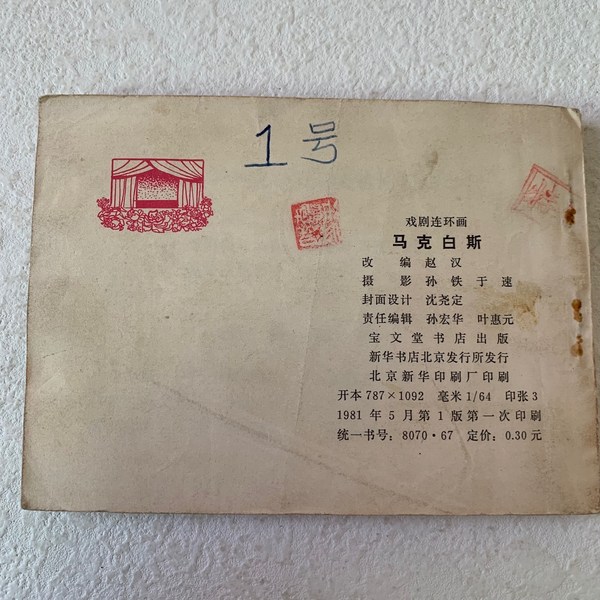 1号
戏剧连环画
马克白斯
改 编 赵 汉
摄 影 孙 铁 于 速
封面设计 沈尧定
责任编辑 孙宏华 叶惠元
宝文堂书店出版
新华书店北京发行所发行
北京新华印刷厂印刷
开本 787×1092 毫米 1/64 印张 3
1981 年 5 月第 1 版第一次印刷
统一书号：8070·67 定价：0.30 元